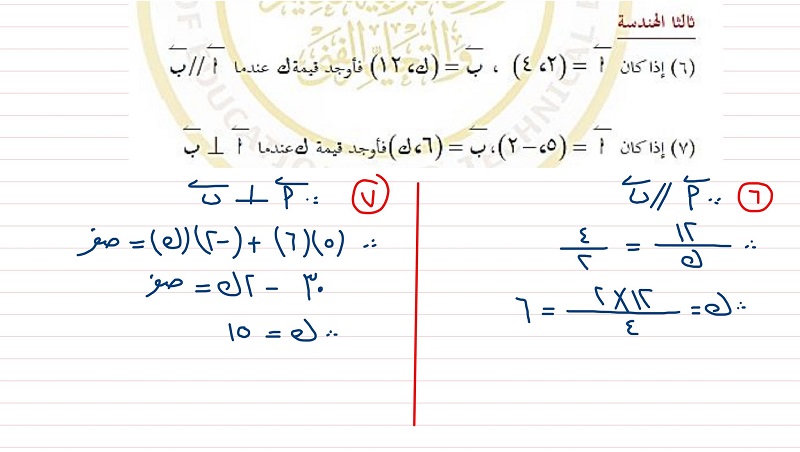 ثالثا الهندسة
(٦) إذا كان أ = (٢، ٤) ، ب = (ك، ١٢) فأوجد قيمة ك عندما أ // ب
(٧) إذا كان أ = (٥، −٢)، ب = (٦، ك) فأوجد قيمة ك عندما أ ⊥ ب
٦ ∵ أ // ب
∴ ١٢/ك = ٤/٢
∴ ك = ١٢×٢/٤ = ٦
٧ ∵ أ ⊥ ب
∴ (٥)(٦) + (−٢)(ك) = صفر
٣٠ − ٢ك = صفر
∴ ك = ١٥